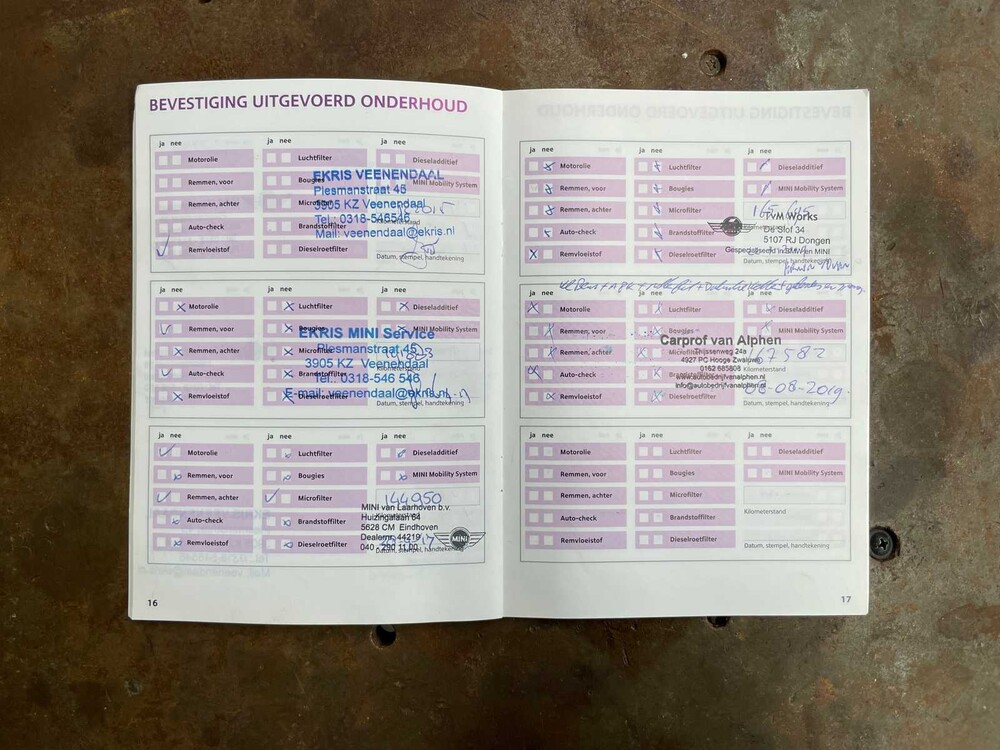 BEVESTIGING UITGEVOERD ONDERHOUD
ja nee
ja nee
ja nee
Motorolie
Luchtfilter
Dieseladditief
Remmen, voor
Bougies
MINI Mobility System
Remmen, achter
Microfilter
Auto-check
Brandstoffilter
Remvloeistof
Dieselroetfilter
Datum, stempel, handtekening
EKRIS VEENENDAAL
Plesmanstraat 45
3905 KZ Veenendaal
Tel.: 0318-546546
Mail: veenendaal@ekris.nl
ja nee
ja nee
ja nee
Motorolie
Luchtfilter
Dieseladditief
Remmen, voor
Bougies
MINI Mobility System
Remmen, achter
Microfilter
Auto-check
Brandstoffilter
Remvloeistof
Dieselroetfilter
Datum, stempel, handtekening
EKRIS MINI Service
Plesmanstraat 45
3905 KZ Veenendaal
Tel.: 0318-546 546
E-mail: veenendaal@ekris.nl
ja nee
ja nee
ja nee
Motorolie
Luchtfilter
Dieseladditief
Remmen, voor
Bougies
MINI Mobility System
Remmen, achter
Microfilter
144950
Auto-check
Brandstoffilter
Kilometerstand
Remvloeistof
Dieselroetfilter
Datum, stempel, handtekening
MINI van Laarhoven b.v.
Huizingalaan 64
5628 CM Eindhoven
Dealernr. 44219
040 - 290 11 00
MINI
16
ja nee
ja nee
ja nee
Motorolie
Luchtfilter
Dieseladditief
Remmen, voor
Bougies
MINI Mobility System
Remmen, achter
Microfilter
Auto-check
Brandstoffilter
Remvloeistof
Dieselroetfilter
Datum, stempel, handtekening
TVM Works
De Slof 34
5107 RJ Dongen
Gespecialiseerd in BMW en MINI
ja nee
ja nee
ja nee
Motorolie
Luchtfilter
Dieseladditief
Remmen, voor
Bougies
MINI Mobility System
Remmen, achter
Microfilter
167582
Auto-check
Brandstoffilter
Kilometerstand
Remvloeistof
Dieselroetfilter
08-08-2019
Datum, stempel, handtekening
Carprof van Alphen
Thijssenweg 24a
4927 PC Hooge Zwaluwe
0162 685808
www.autobedrijfvanalphen.nl
info@autobedrijfvanalphen.nl
ja nee
ja nee
ja nee
Motorolie
Luchtfilter
Dieseladditief
Remmen, voor
Bougies
MINI Mobility System
Remmen, achter
Microfilter
Auto-check
Brandstoffilter
Kilometerstand
Remvloeistof
Dieselroetfilter
Datum, stempel, handtekening
17